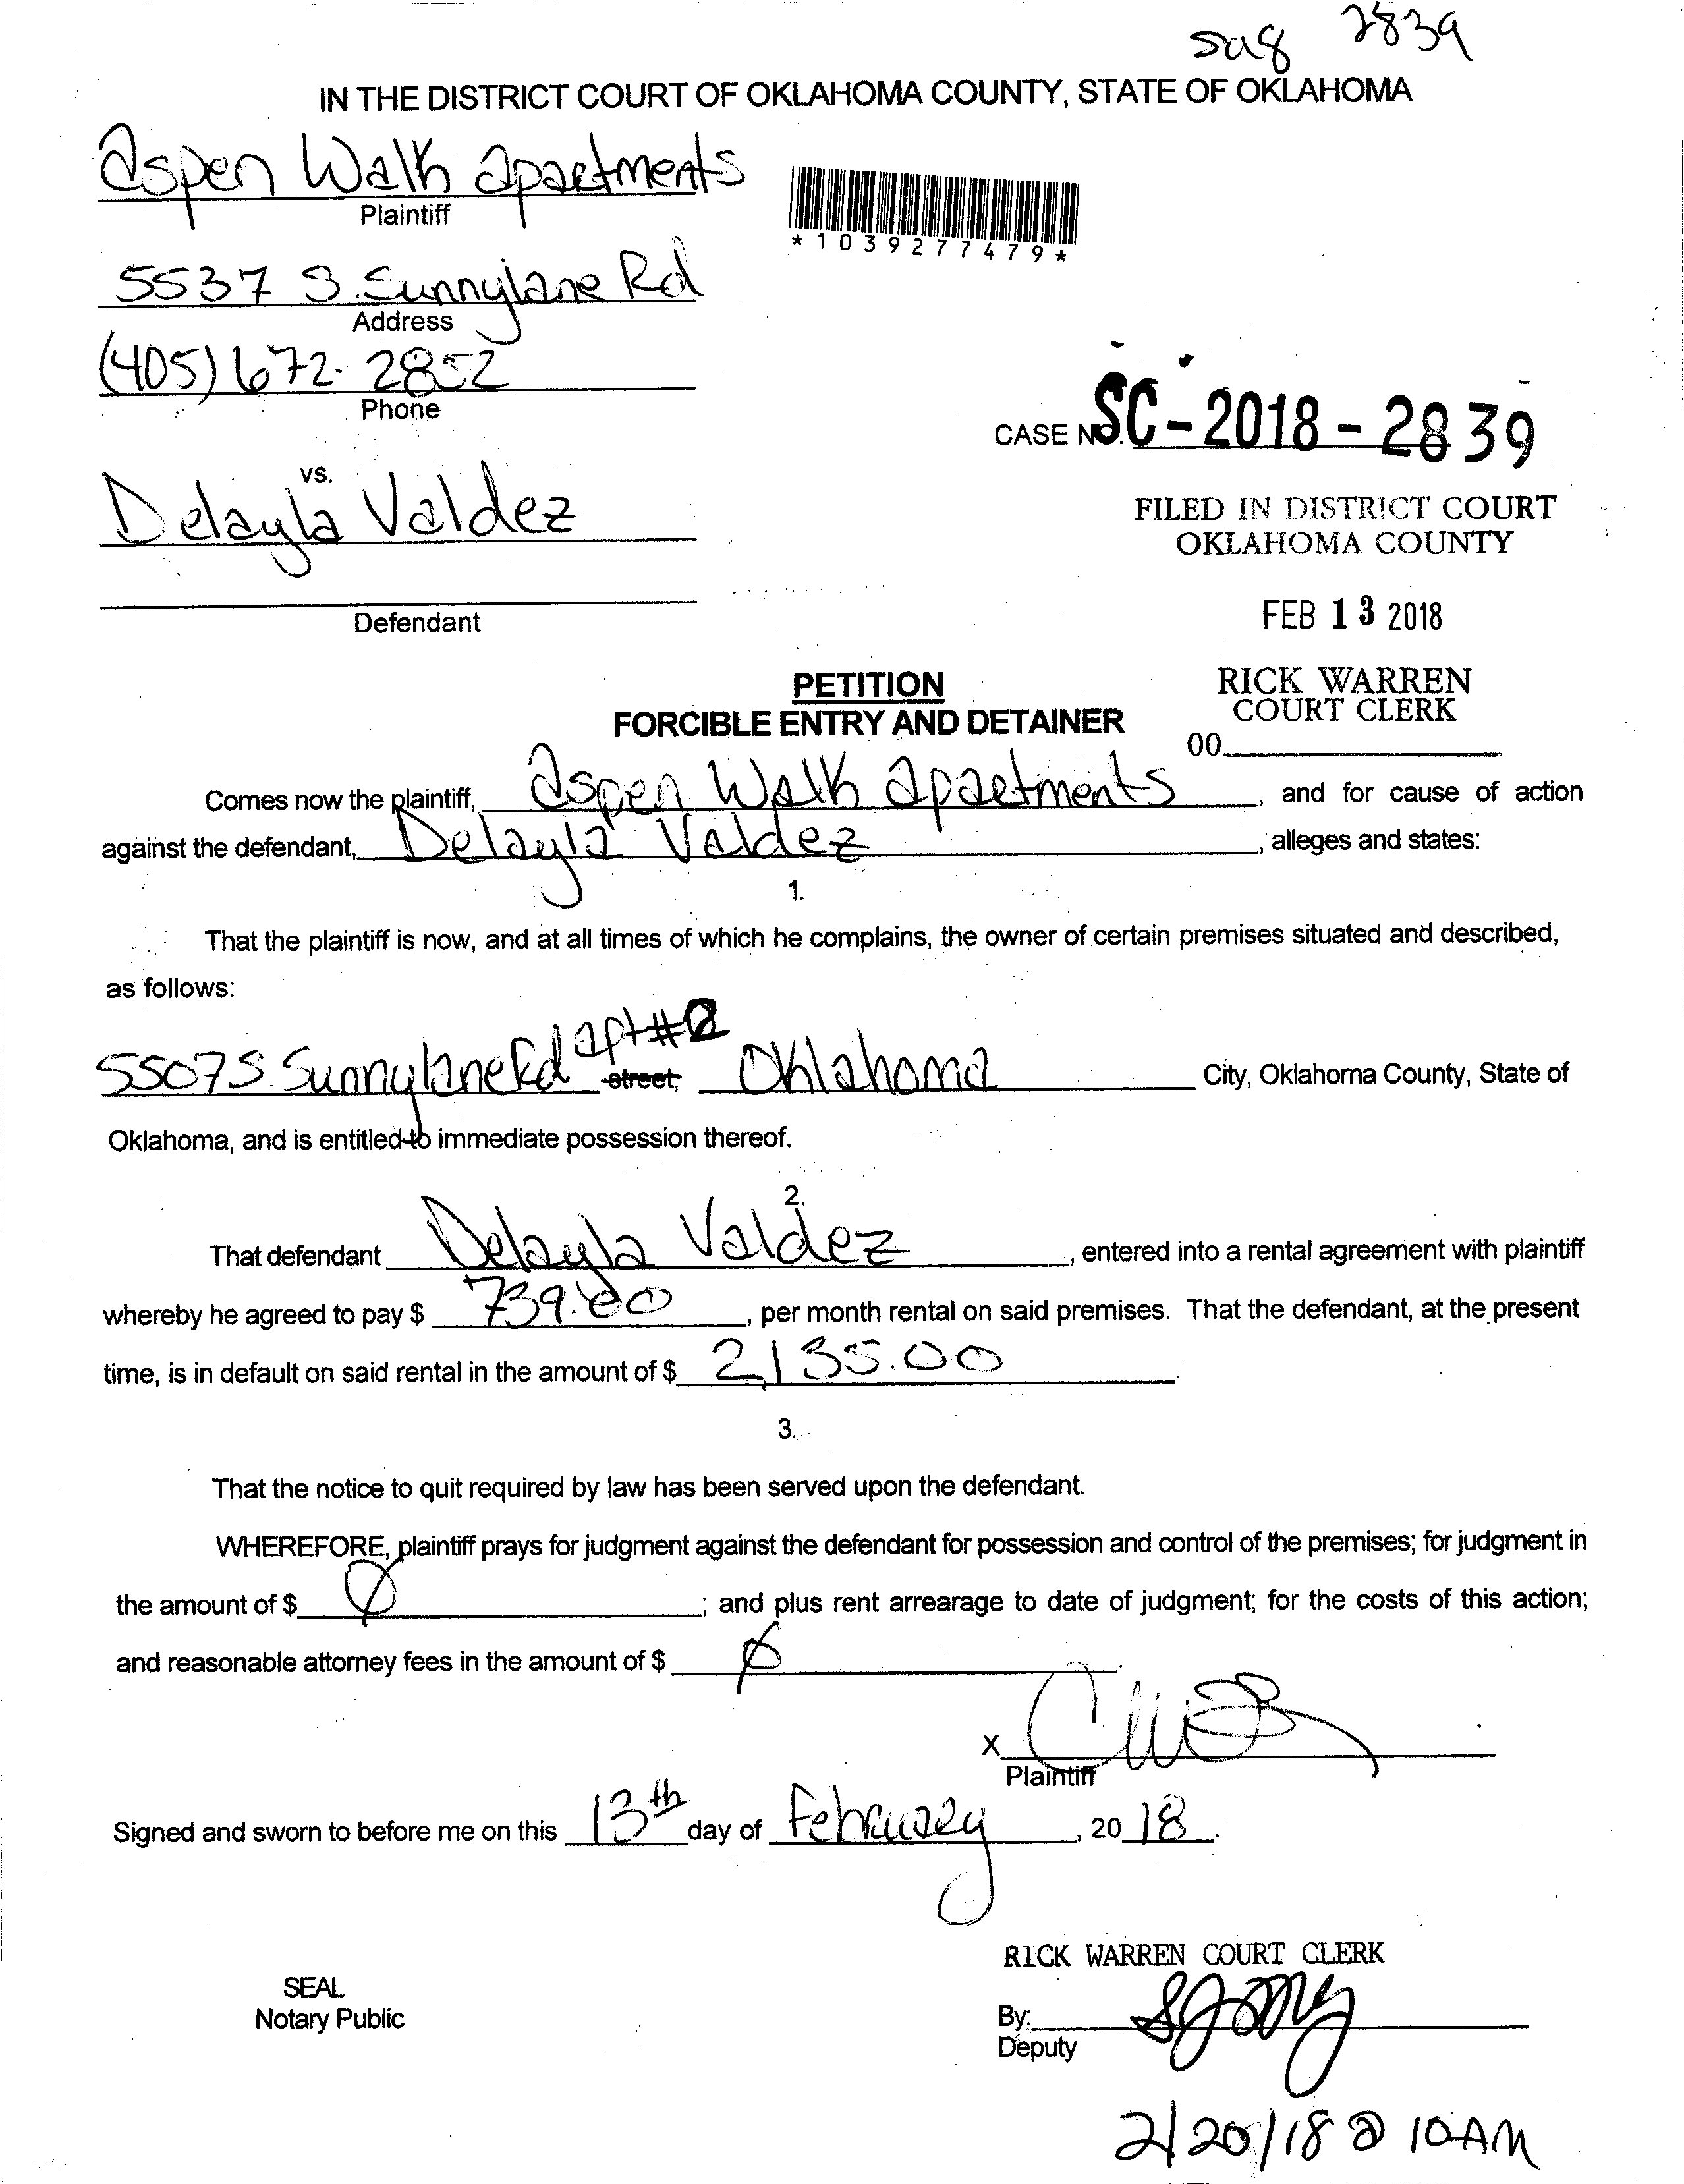 2839
IN THE DISTRICT COURT OF OKLAHOMA COUNTY, STATE OF OKLAHOMA
Aspen Walk Apartments
Plaintiff
*1039277479*
5537 S. Sunnylane Rd
Address
(405) 672-2852
Phone
CASE NO. SC-2018-2839
vs.
Delayla Valdez
FILED IN DISTRICT COURT
OKLAHOMA COUNTY
Defendant
FEB 13 2018
PETITION
FORCIBLE ENTRY AND DETAINER
RICK WARREN
COURT CLERK
00
Comes now the plaintiff, Aspen Walk Apartments, and for cause of action
against the defendant, Delayla Valdez, alleges and states:
1.
That the plaintiff is now, and at all times of which he complains, the owner of certain premises situated and described,
as follows:
5507 S. Sunnylane Rd apt# street, Oklahoma City, Oklahoma County, State of
Oklahoma, and is entitled to immediate possession thereof.
2.
That defendant Delayla Valdez, entered into a rental agreement with plaintiff
whereby he agreed to pay $ 739.00, per month rental on said premises. That the defendant, at the present
time, is in default on said rental in the amount of $ 2,135.00.
3.
That the notice to quit required by law has been served upon the defendant.
WHEREFORE, plaintiff prays for judgment against the defendant for possession and control of the premises; for judgment in
the amount of $ Ø; and plus rent arrearage to date of judgment; for the costs of this action;
and reasonable attorney fees in the amount of $ Ø.
X
Plaintiff
Signed and sworn to before me on this 13th day of February, 2018.
RICK WARREN COURT CLERK
SEAL
Notary Public
By:
Deputy
2/20/18 @ 10AM